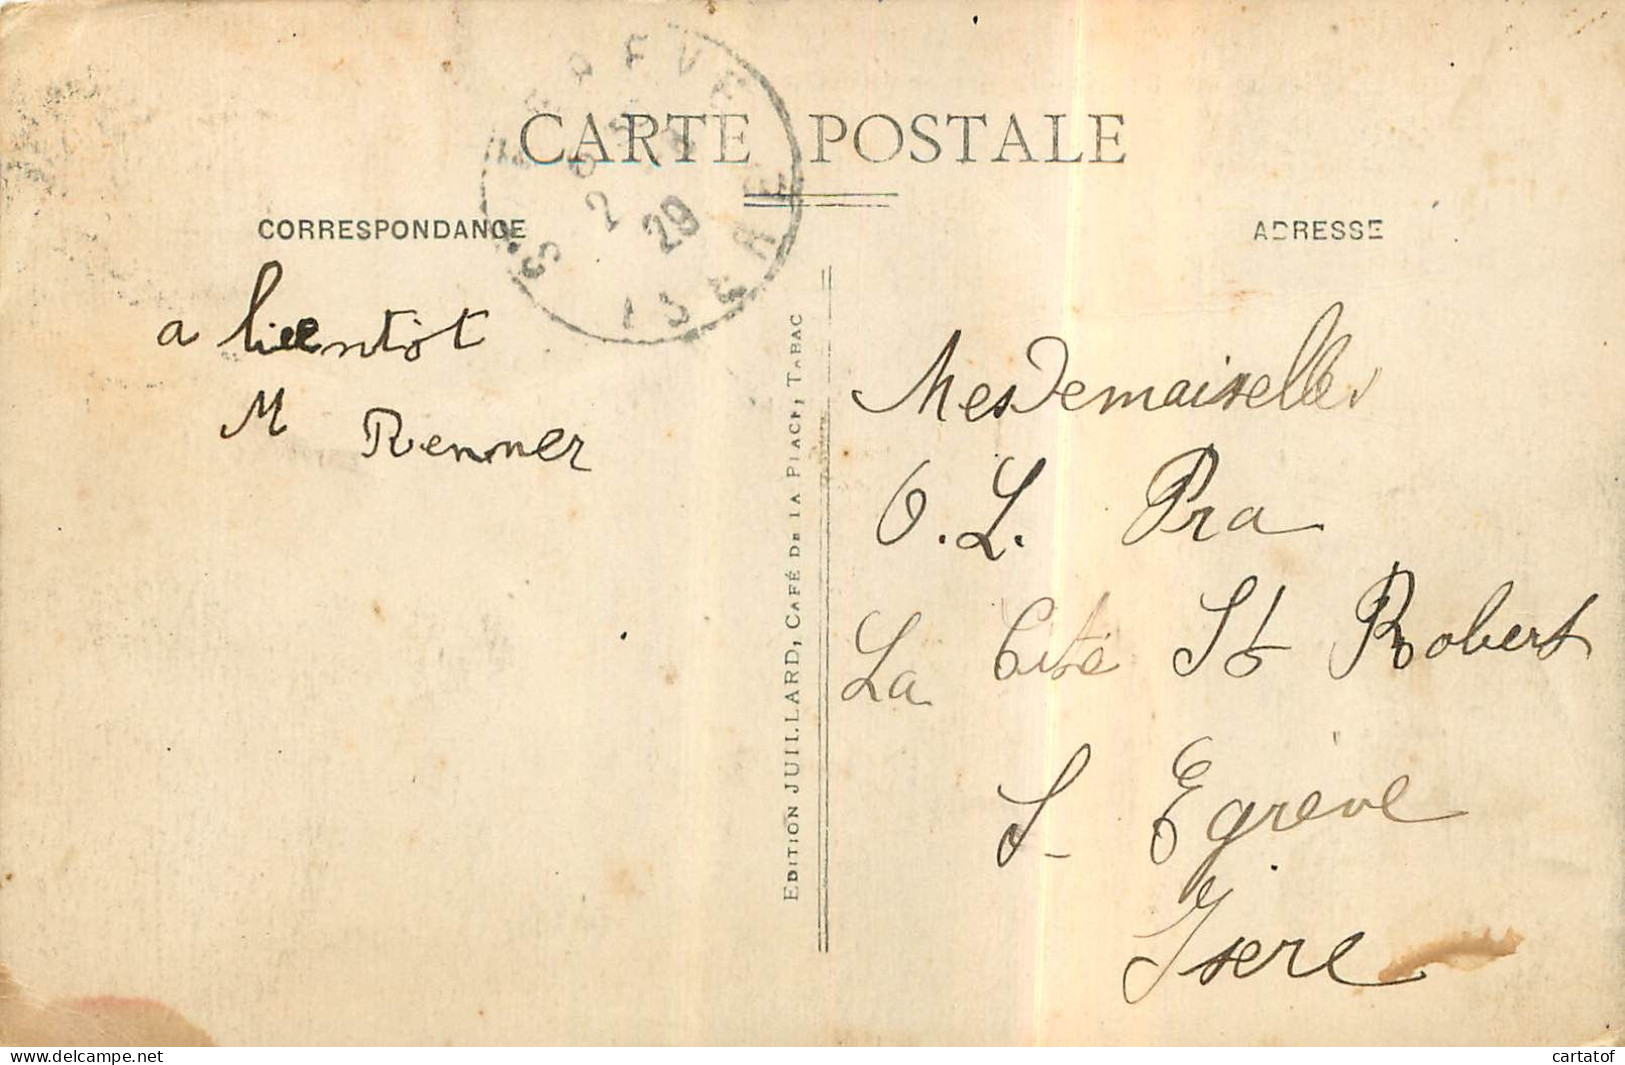 CARTE POSTALE
CORRESPONDANCE
ADRESSE
ISERE
29
a bientôt
M Renner
EDITION JUILLARD, CAFÉ DE LA PLACE, TABAC
MesDemaiselles
O. L. Pra
La Cité St Robert
S- Egrève
Isere
delcampe.net
cartatof